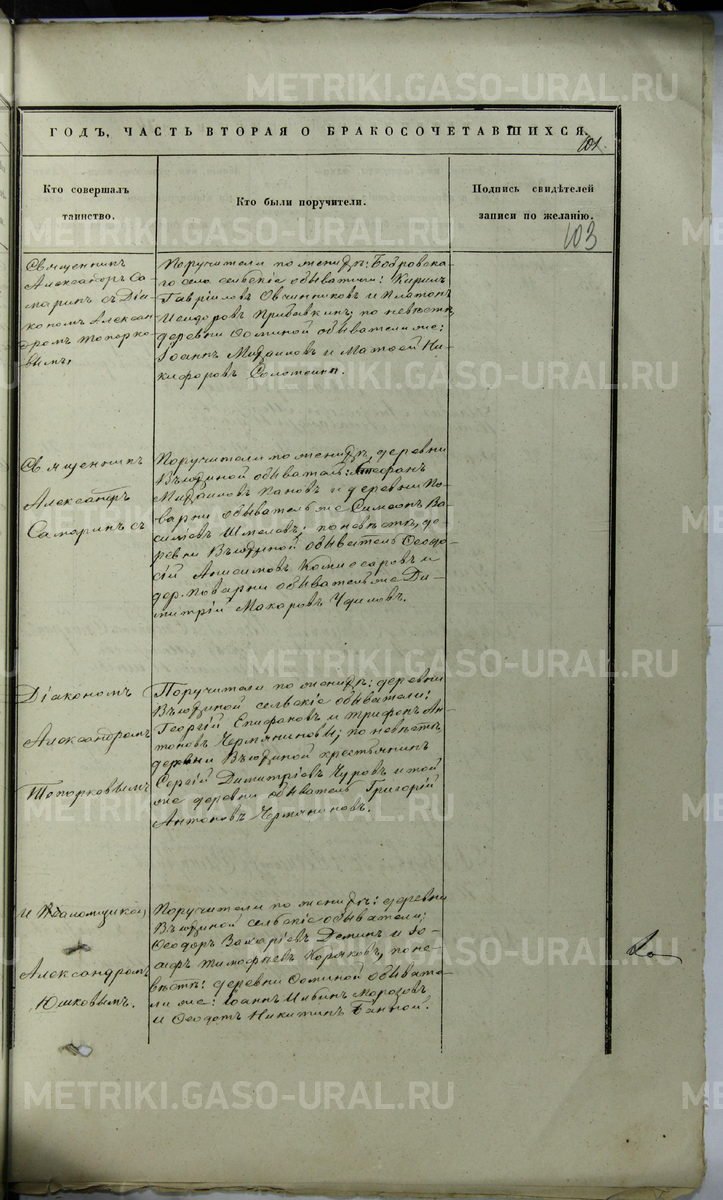 ГОДЪ, ЧАСТЬ ВТОРАЯ О БРАКОСОЧЕТАВШИХСЯ.
101.
Кто совершалъ
таинство.
Кто были поручители.
Подпись свидѣтелей
записи по желанію.
103
Священникъ
Александръ Са-
маринъ съ Діа-
кономъ Алексан-
дромъ Топорко-
вымъ,
Поручители по женихѣ: Бобровска-
го села сельскіе обыватели: Кирилъ
Гавріиловъ Овчинниковъ и Платонъ
Исидоровъ Прибавкинъ; по невѣстѣ,
деревни Осминой обыватели же:
Іоаннъ Михаиловъ и Матѳей Ни-
кифоровъ
Священникъ
Александръ
Самаринъ съ
Поручители по женихѣ, деревни
Вьюхиной обыватель: Стефанъ
Михаиловъ Пановъ и деревни По-
варни обыватель же Симеонъ Ва-
силіевъ Шмелевъ; по невѣстѣ, де-
ревни Вьюхиной обыватель Ѳеодо-
сій Анисимовъ Комиссаровъ и
дер. Поварни обыватель же Ди-
митрій Макаровъ
Діакономъ
Александромъ
Топорковымъ
Поручители по женихѣ: деревни
Вьюхиной сельскіе обыватели:
Георгій Епифановъ и Трифонъ Ан-
тоновъ Чермяниновы; по невѣстѣ,
деревни Вьюхиной крестьянинъ
Сергій Димитріевъ Чуровъ и той
же деревни обыватель Григорій
Антоновъ Чермяниновъ.
и Псаломщикомъ
Александромъ
Юшковымъ.
Поручители по женихѣ: деревни
Вьюхиной сельскіе обыватели:
Ѳеодоръ Захаріевъ Деминъ и Іо-
сифъ Тимофѣевъ Коряковъ, по не-
вѣстѣ: деревни Осминой обывате-
ли же: Іоаннъ Ильинъ Морозовъ
и Ѳеодотъ Никитинъ
METRIKI.GASO-URAL.RU
METRIKI.GASO-URAL.RU
METRIKI.GASO-URAL.RU
METRIKI.GASO-URAL.RU
METRIKI.GASO-URAL.RU
METRIKI.GASO-URAL.RU
METRIKI.GASO-URAL.RU
METRIKI.GASO-URAL.RU